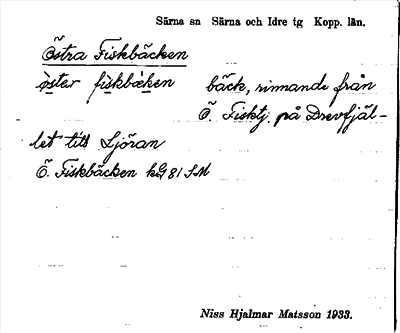 Särna sn Särna och Idre tg Kopp. län.
Östra Fiskbäcken
öster fiskbäken bäck, rinnande från
Ö. Fisktj. på Drevfjäl-
let till Ljöran
Ö. Fiskbäcken kG 81 SM
Niss Hjalmar Matsson 1933.